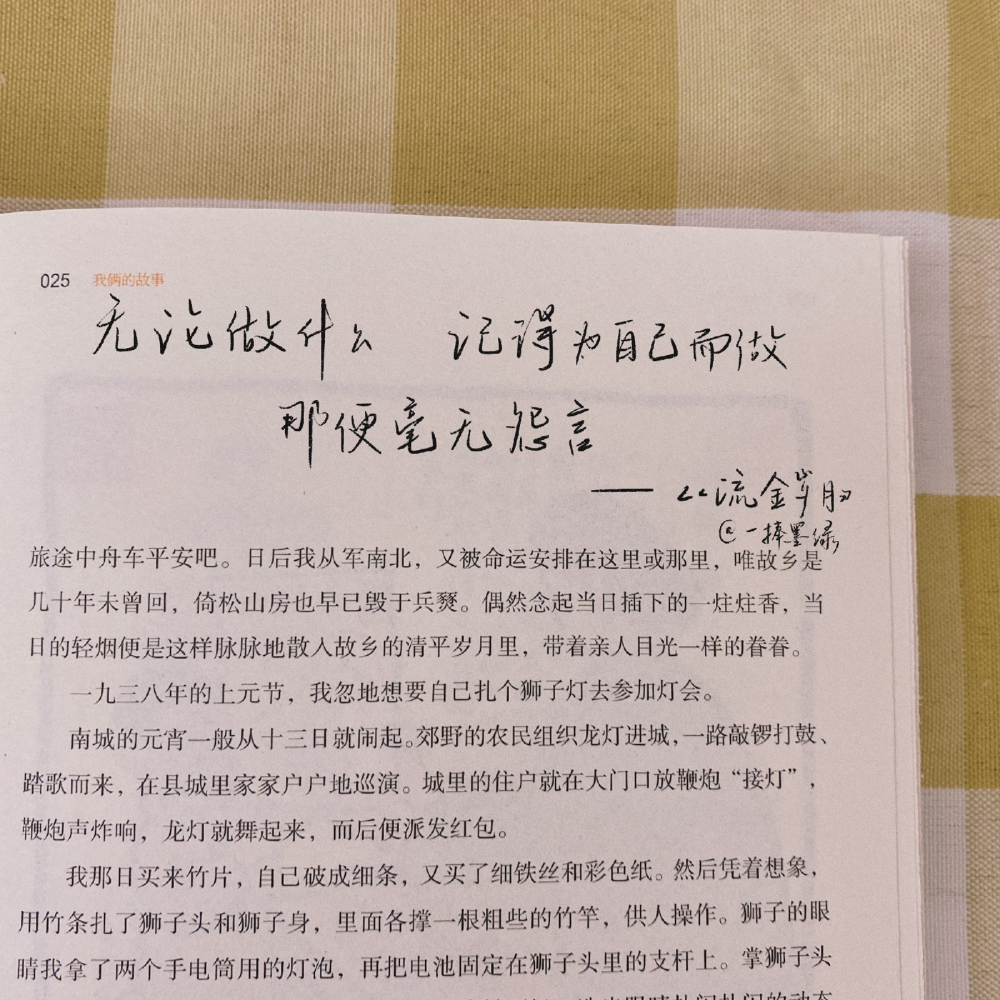 025 我俩的故事
无论做什么 记得为自己而做
那便毫无怨言
—— 《流金岁月》
@一捧墨绿
旅途中舟车平安吧。日后我从军南北，又被命运安排在这里或那里，唯故乡是
几十年未曾回，倚松山房也早已毁于兵燹。偶然念起当日插下的一炷炷香，当
日的轻烟便是这样脉脉地散入故乡的清平岁月里，带着亲人目光一样的眷眷。
一九三八年的上元节，我忽地想要自己扎个狮子灯去参加灯会。
南城的元宵一般从十三日就闹起。郊野的农民组织龙灯进城，一路敲锣打鼓、
踏歌而来，在县城里家家户户地巡演。城里的住户就在大门口放鞭炮“接灯”，
鞭炮声炸响，龙灯就舞起来，而后便派发红包。
我那日买来竹片，自己破成细条，又买了细铁丝和彩色纸。然后凭着想象，
用竹条扎了狮子头和狮子身，里面各撑一根粗些的竹竿，供人操作。狮子的眼
睛我拿了两个手电筒用的灯泡，再把电池固定在狮子头里的支杆上。掌狮子头